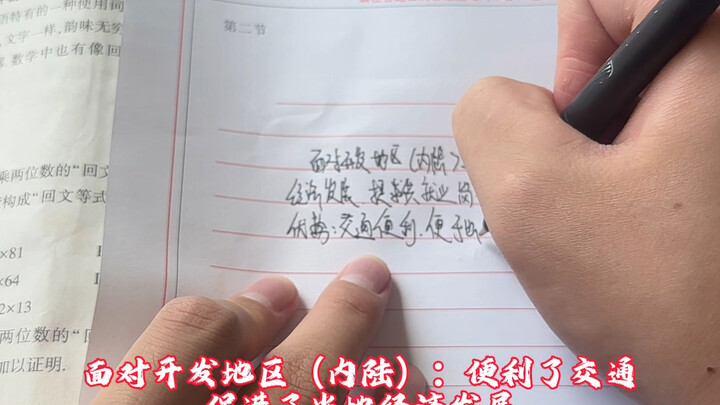 语特有的一种使用词
文字一样,韵味无穷
数学中也有像回
乘两位数的“回文
构成“回文等式
×81
×64
2×13
两位数的“回
加以证明.
第二节
面对开发地区(内陆)
经济发展 提供就业岗
优势:交通便利.便于
面对开发地区(内陆):便利了交通
促进了当地经济发展